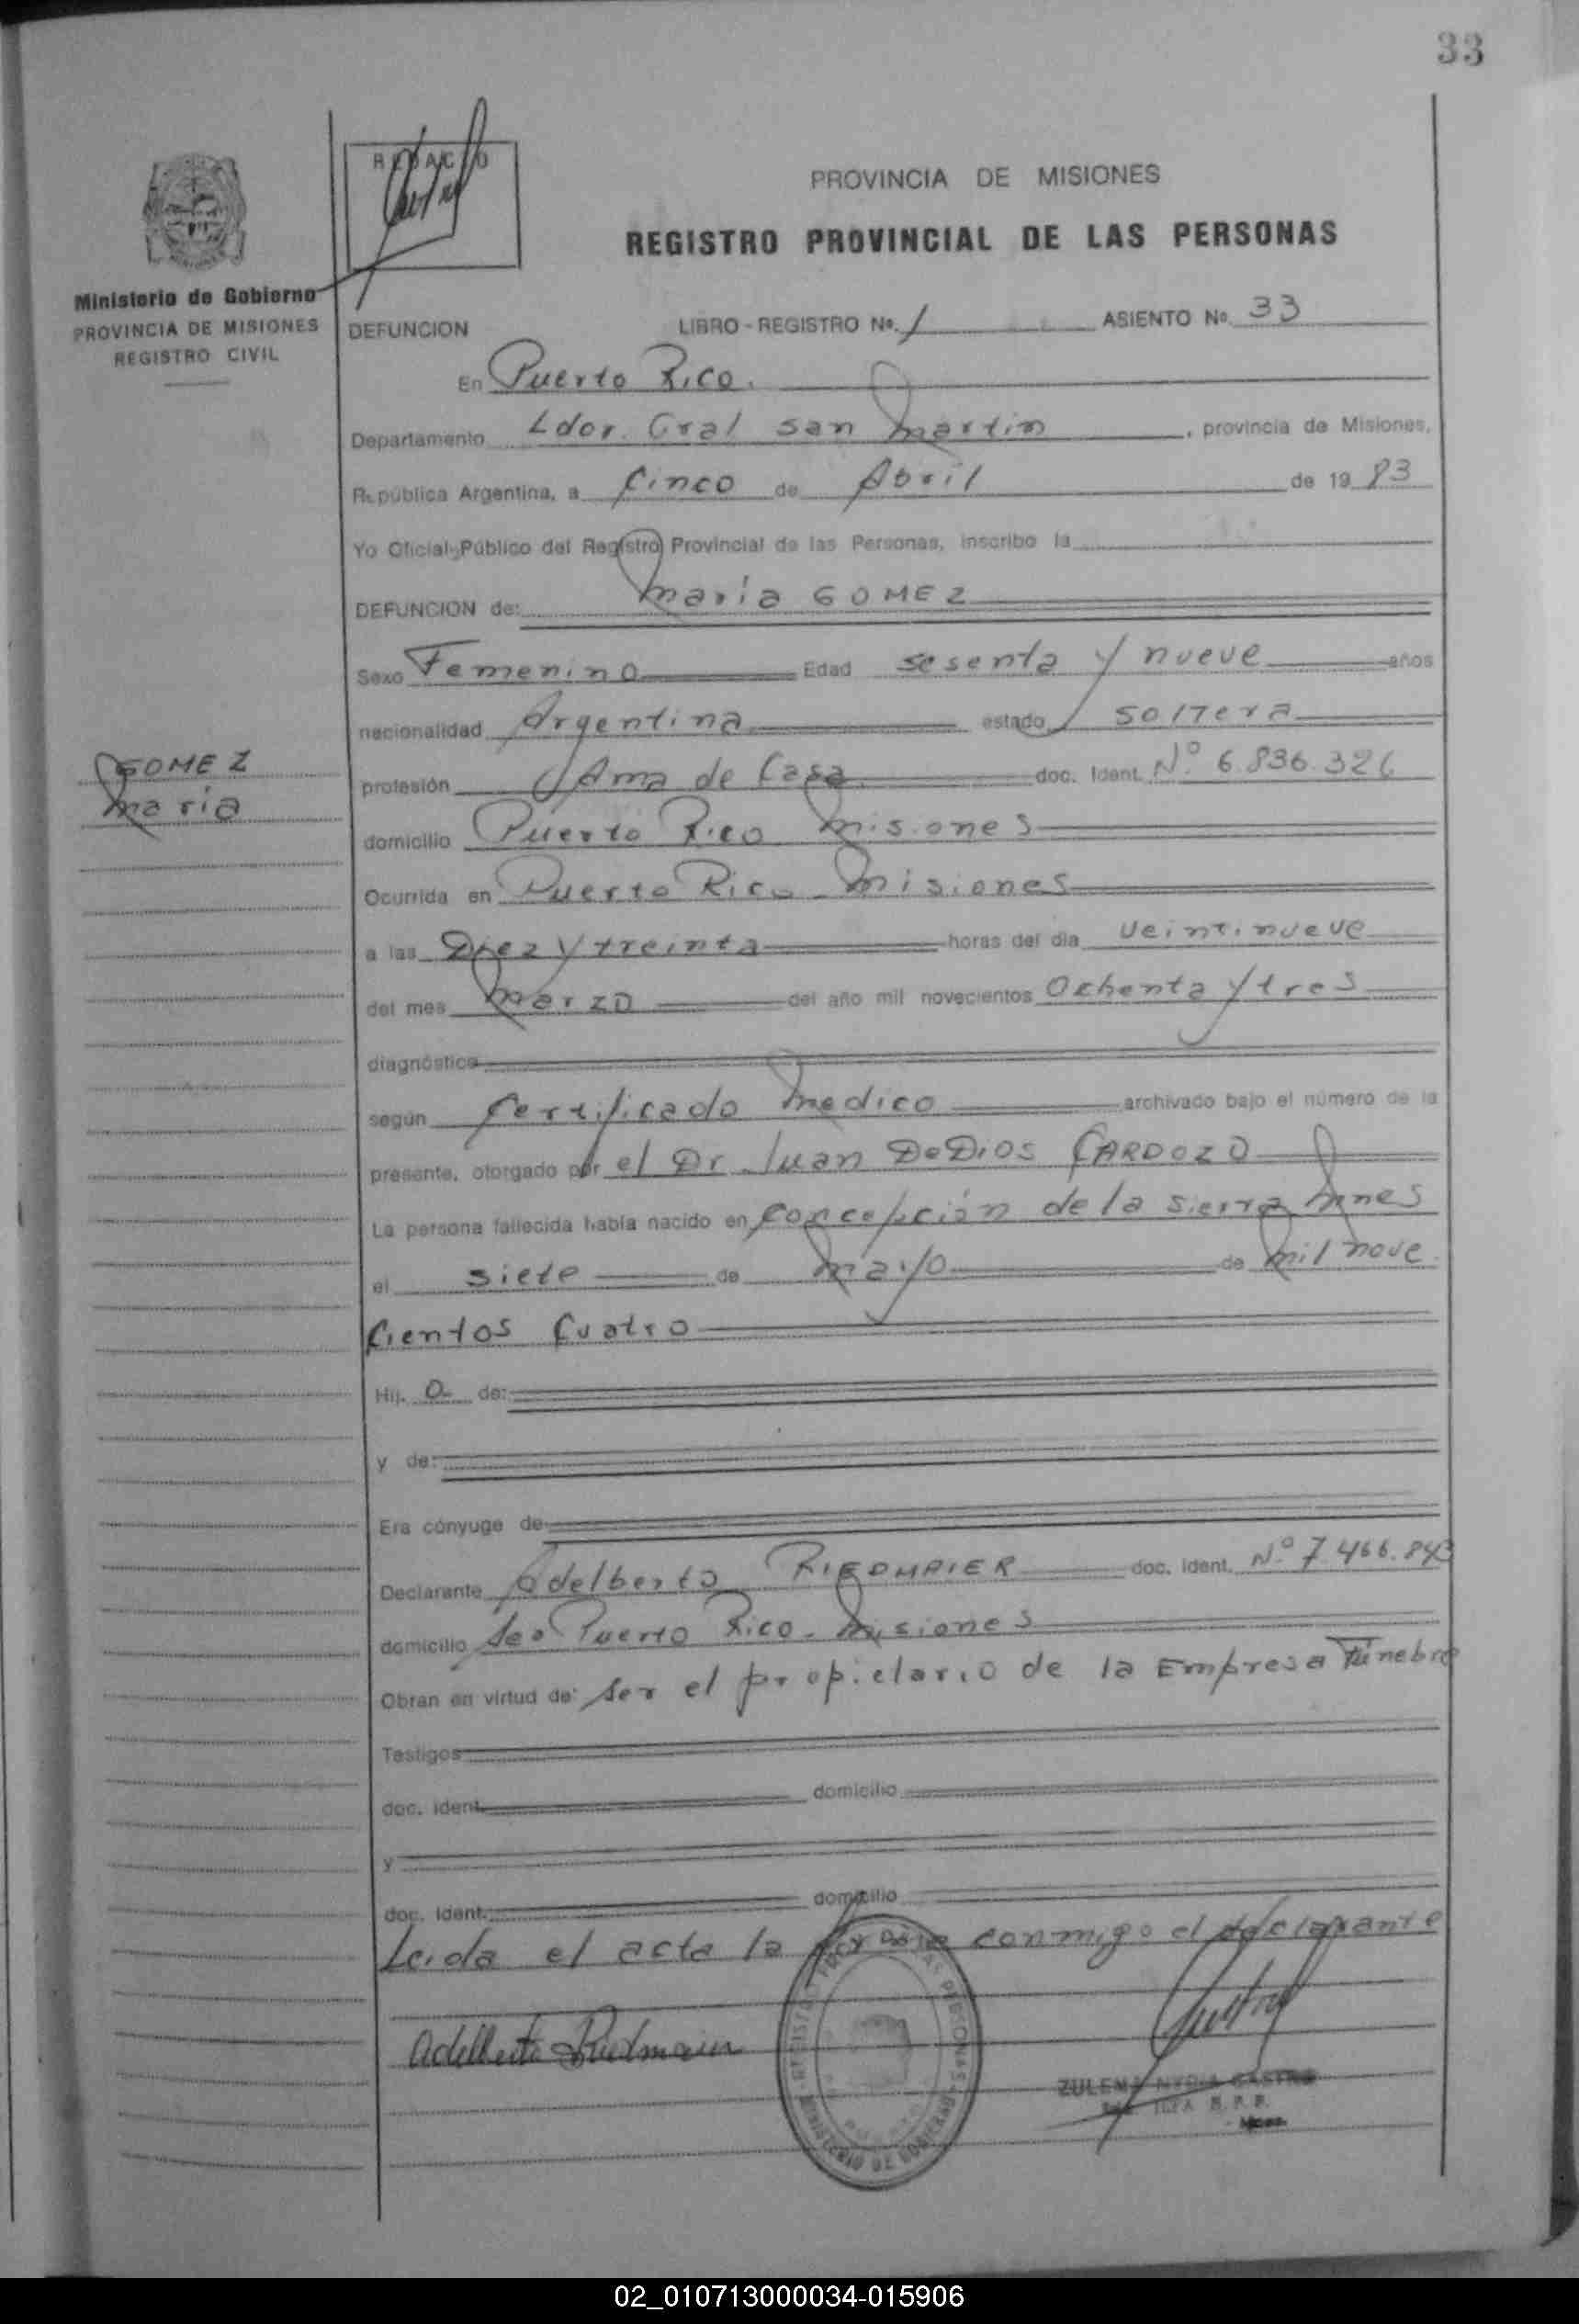 33
PROVINCIA DE MISIONES
REGISTRO PROVINCIAL DE LAS PERSONAS
Ministerio de Gobierno
PROVINCIA DE MISIONES
REGISTRO CIVIL
DEFUNCION LIBRO - REGISTRO No. 1 ASIENTO No. 33
En Puerto Rico.
Departamento Ldor. Gral san Martin, provincia de Misiones,
República Argentina, a Cinco de Abril de 1983
Yo Oficial Público del Registro Provincial de las Personas, inscribo la
DEFUNCION de: Maria GOMEZ
Sexo Femenino Edad sesenta y nueve años
nacionalidad Argentina estado soltera
GOMEZ
Maria
profesión Ama de Casa doc. Ident. Nº 6.836.326
domicilio Puerto Rico Misiones
Ocurrida en Puerto Rico Misiones
a las Diez y treinta horas del día veintinueve
del mes Marzo del año mil novecientos Ochenta y tres
diagnóstico
según Certificado Medico archivado bajo el número de la
presente, otorgado por el Dr. Juan DeDios CARDOZO
La persona fallecida había nacido en Concepción de la Sierra Mnes
el siete de Mayo de Mil nove
Cientos Cuatro
Hij. a de:
y de:
Era cónyuge de
Declarante Adelberto RIEDMAIER doc. Ident. Nº 7.466.843
domicilio Puerto Rico. Misiones
Obran en virtud de: ser el propietario de la Empresa Fúnebre
Testigos
doc. ident. domicilio
y
doc. ident. domicilio
Leida el acta la conmigo el declarante
Adelberto Riedmaier
REGISTRO PROV. DE LAS PERSONAS
MINISTERIO DE GOBIERNO
ZULEMA NYDIA CASTRO
02_010713000034-015906